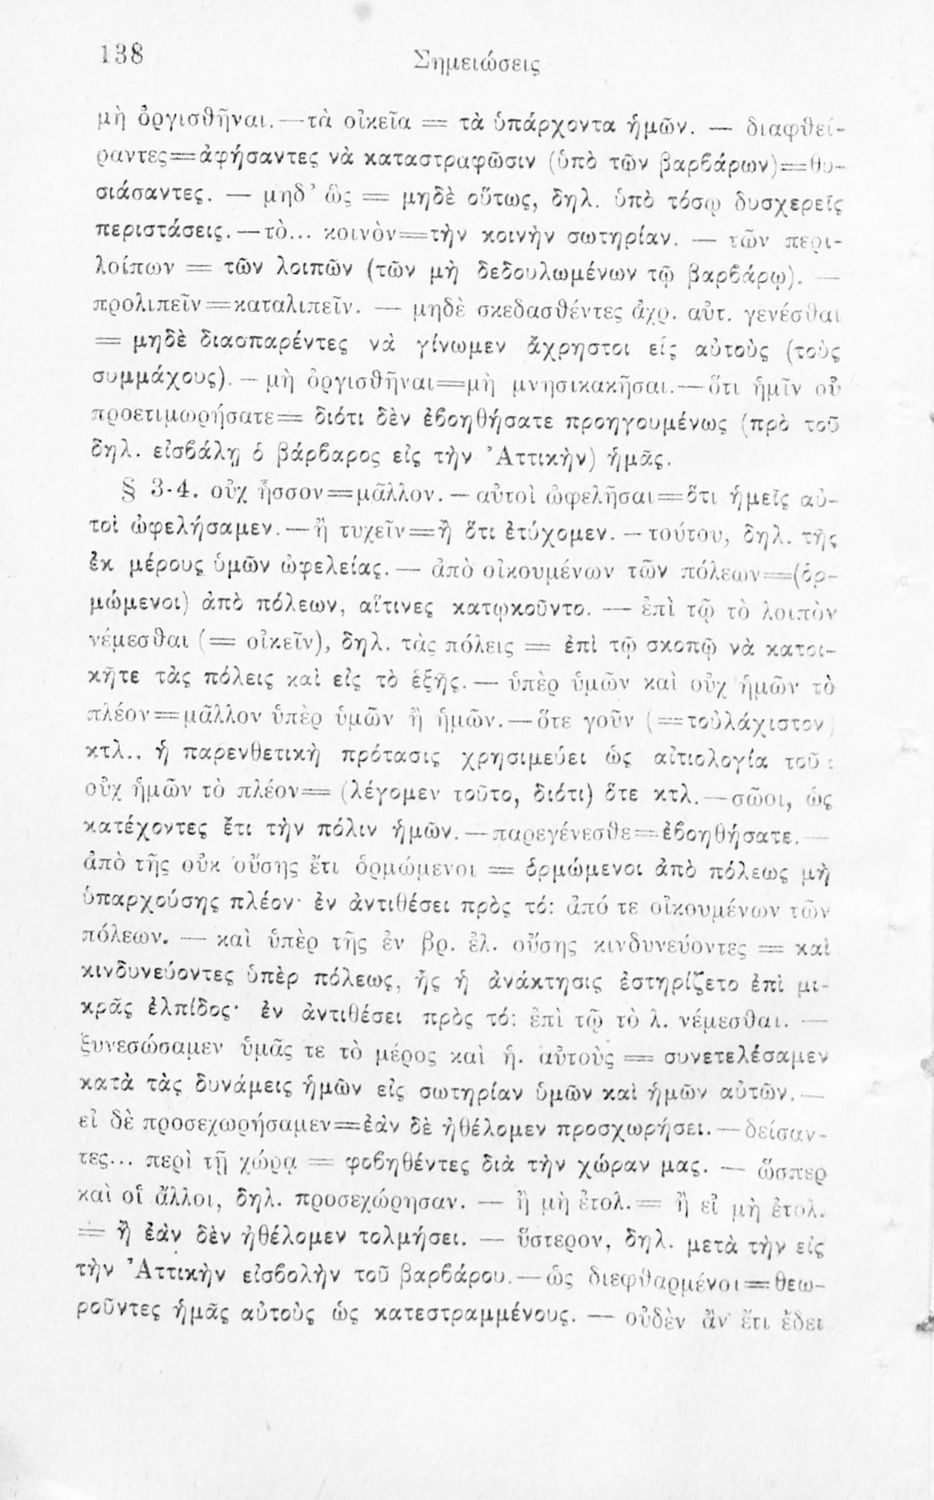 138
Σημειώσεις
μὴ ὀργισθῆναι.—τὰ οἰκεῖα = τὰ ὑπάρχοντα ἡμῶν. — διαφθεί-
ραντες=ἀφήσαντες νὰ καταστραφῶσιν (ὑπὸ τῶν βαρβάρων)=θυ-
σιάσαντες. — μηδ’ ὣς = μηδὲ οὕτως, δηλ. ὑπὸ τόσῳ δυσχερεῖς
περιστάσεις.—τὸ... κοινὸν=τὴν κοινὴν σωτηρίαν. — τῶν περι-
λοίπων = τῶν λοιπῶν (τῶν μὴ δεδουλωμένων τῷ βαρβάρῳ). —
προλιπεῖν=καταλιπεῖν. — μηδὲ σκεδασθέντες ἀχρ. αὐτ. γενέσθαι
= μηδὲ διασπαρέντες νὰ γίνωμεν ἄχρηστοι εἰς αὐτοὺς (τοὺς
συμμάχους). — μὴ ὀργισθῆναι=μὴ μνησικακῆσαι.—ὅτι ἡμῖν οὐ
προετιμωρήσατε= διότι δὲν ἐβοηθήσατε προηγουμένως (πρὸ τοῦ
δηλ. εἰσβάλῃ ὁ βάρβαρος εἰς τὴν Ἀττικὴν) ἡμᾶς.
§ 3-4. οὐχ ἧσσον=μᾶλλον. — αὐτοὶ ὠφελῆσαι=ὅτι ἡμεῖς αὐ-
τοὶ ὠφελήσαμεν.—ἢ τυχεῖν=ἢ ὅτι ἐτύχομεν. — τούτου, δηλ. τῆς
ἐκ μέρους ὑμῶν ὠφελείας.— ἀπὸ οἰκουμένων τῶν πόλεων=(ὁρ-
μώμενοι) ἀπὸ πόλεων, αἵτινες κατῳκοῦντο. — ἐπὶ τῷ τὸ λοιπὸν
νέμεσθαι (= οἰκεῖν), δηλ. τὰς πόλεις = ἐπὶ τῷ σκοπῷ νὰ κατοι-
κῆτε τὰς πόλεις καὶ εἰς τὸ ἑξῆς.— ὑπὲρ ὑμῶν καὶ οὐχ ἡμῶν τὸ
πλέον=μᾶλλον ὑπὲρ ὑμῶν ἢ ἡμῶν.—ὅτε γοῦν (=τοὐλάχιστον)
κτλ., ἡ παρενθετικὴ πρότασις χρησιμεύει ὡς αἰτιολογία τοῦ:
οὐχ ἡμῶν τὸ πλέον= (λέγομεν τοῦτο, διότι) ὅτε κτλ.—σῶοι, ὡς
κατέχοντες ἔτι τὴν πόλιν ἡμῶν.—παρεγένεσθε=ἐβοηθήσατε. —
ἀπὸ τῆς οὐκ οὔσης ἔτι ὁρμώμενοι = ὁρμώμενοι ἀπὸ πόλεως μὴ
ὑπαρχούσης πλέον· ἐν ἀντιθέσει πρὸς τό: ἀπό τε οἰκουμένων τῶν
πόλεων. — καὶ ὑπὲρ τῆς ἐν βρ. ἐλ. οὔσης κινδυνεύοντες = καὶ
κινδυνεύοντες ὑπὲρ πόλεως, ἧς ἡ ἀνάκτησις ἐστηρίζετο ἐπὶ μι-
κρᾶς ἐλπίδος· ἐν ἀντιθέσει πρὸς τό: ἐπὶ τῷ τὸ λ. νέμεσθαι. —
ξυνεσώσαμεν ὑμᾶς τε τὸ μέρος καὶ ἡ. αὐτοὺς = συνετελέσαμεν
κατὰ τὰς δυνάμεις ἡμῶν εἰς σωτηρίαν ὑμῶν καὶ ἡμῶν αὐτῶν.—
εἰ δὲ προσεχωρήσαμεν=ἐὰν δὲ ἠθέλομεν προσχωρήσει.—δείσαν-
τες... περὶ τῇ χώρᾳ = φοβηθέντες διὰ τὴν χώραν μας. — ὥσπερ
καὶ οἱ ἄλλοι, δηλ. προσεχώρησαν. — ἢ μὴ ἐτολ.= ἢ εἰ μὴ ἐτολ.
= ἢ ἐὰν δὲν ἠθέλομεν τολμήσει. — ὕστερον, δηλ. μετὰ τὴν εἰς
τὴν Ἀττικὴν εἰσβολὴν τοῦ βαρβάρου.—ὡς διεφθαρμένοι=θεω-
ροῦντες ἡμᾶς αὐτοὺς ὡς κατεστραμμένους. — οὐδὲν ἂν ἔτι ἔδει